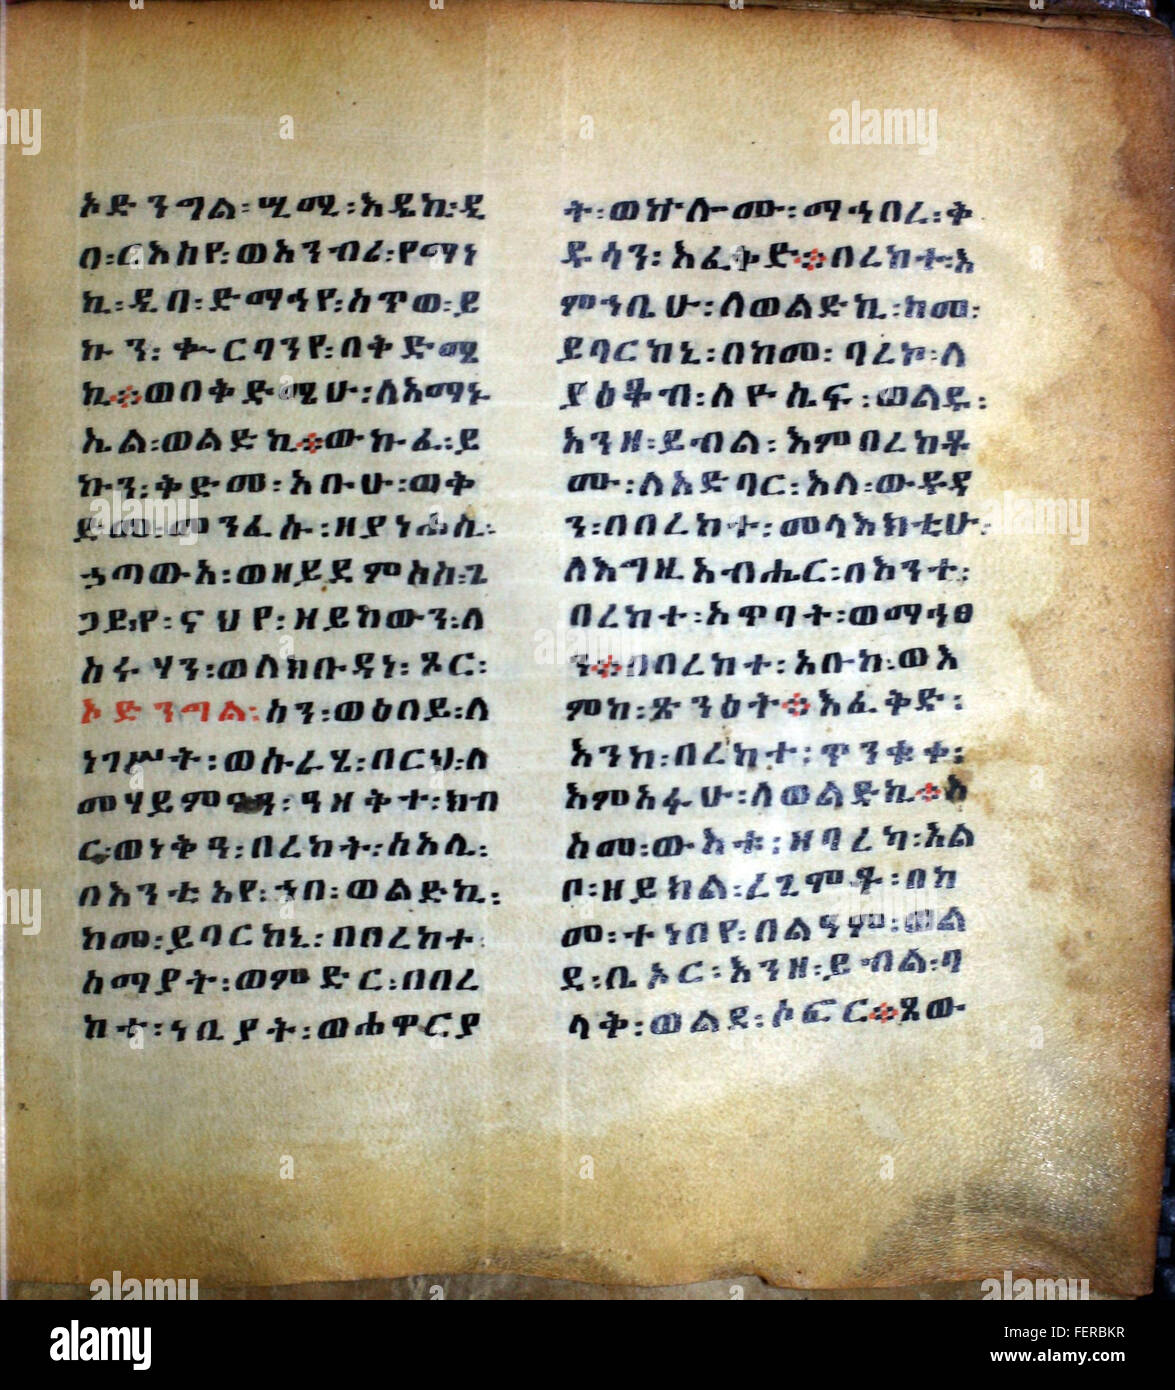 ኦድንግል፡ሢሚ፡እዴኪ፡ዲ
በ፡ርእስየ፡ወአንብሪ፡የማነ
ኪ፡ዲበ፡ድማኅየ፡ከጥወ፡ይ
ኩን፡ቍርባንየ፡በቅድሜ
ኪ፨ወበቅድሜሁ፡ለአማኑ
ኤል፡ወልድኪ፨ውኩፈ፡ይ
ኩን፡ቅድመ፡አቡሁ፡ወቅ
ድመ፡መንፈሱ፡ዘያነሕሲ፡
ኃጣውአ፡ወዘይደምስስ፡ጌ
ጋይ፡የ፡ናህየ፡ዘይከውን፡ለ
ስሩሃን፡ወለክቡዳነ፡ጾር፡
ኦድንግል፡ስን፡ወዕበይ፡ለ
ነገሥት፡ወሱራሂ፡በርህ፡ለ
ር፡ወነቅዓ፡በረከት፡ስአሊ፡
በእንቲአየ፡ኀበ፡ወልድኪ፡
ከመ፡ይባርከኒ፡በበረከተ
ሰማያት፡ወምድር፡በበረ
ከተ፡ነቢያት፡ወሐዋርያ
ት፡ወኵሎሙ፡ማኅበረ፡ቅ
ዱሳን፡እፈቅድ፨በረከተ፡እ
ምኀቢሁ፡ለወልድኪ፡ከመ፡
ይባርከኒ፡በከመ፡ባረኮ፡ለ
ያዕቆብ፡ለዮሴፍ፡ወልዱ፡
እንዘ፡ይብል፡እምበረከቶ
ሙ፡ለአድባር፡እለ፡ውዱዳ
ን፡በበረከተ፡መላእክቲሁ፡
ለእግዚአብሔር፡በእንተ፡
በረከተ፡አጥባት፡ወማኅፀ
ን፨በበረከተ፡አቡከ፡ወእ
ምከ፡ጽንዕት፨እፈቅድ፡
አንከ፡በረከተ፡ጥንቁቀ፡
እምአፉሁ፡ለወልድኪ፨አ
ከመ፡ውእቱ፡ዘባረካ፡አል
ቦ፡ዘይክል፡ረጊሞቶ፡በከ
መ፡ተነበየ፡በልዓም፡ወል
ደ፡ቢኦር፡እንዘ፡ይብል፡ባ
ላቅ፡ወልደ፡ሶፎር፨ጼው
alamy
FERBKR
www.alamy.com